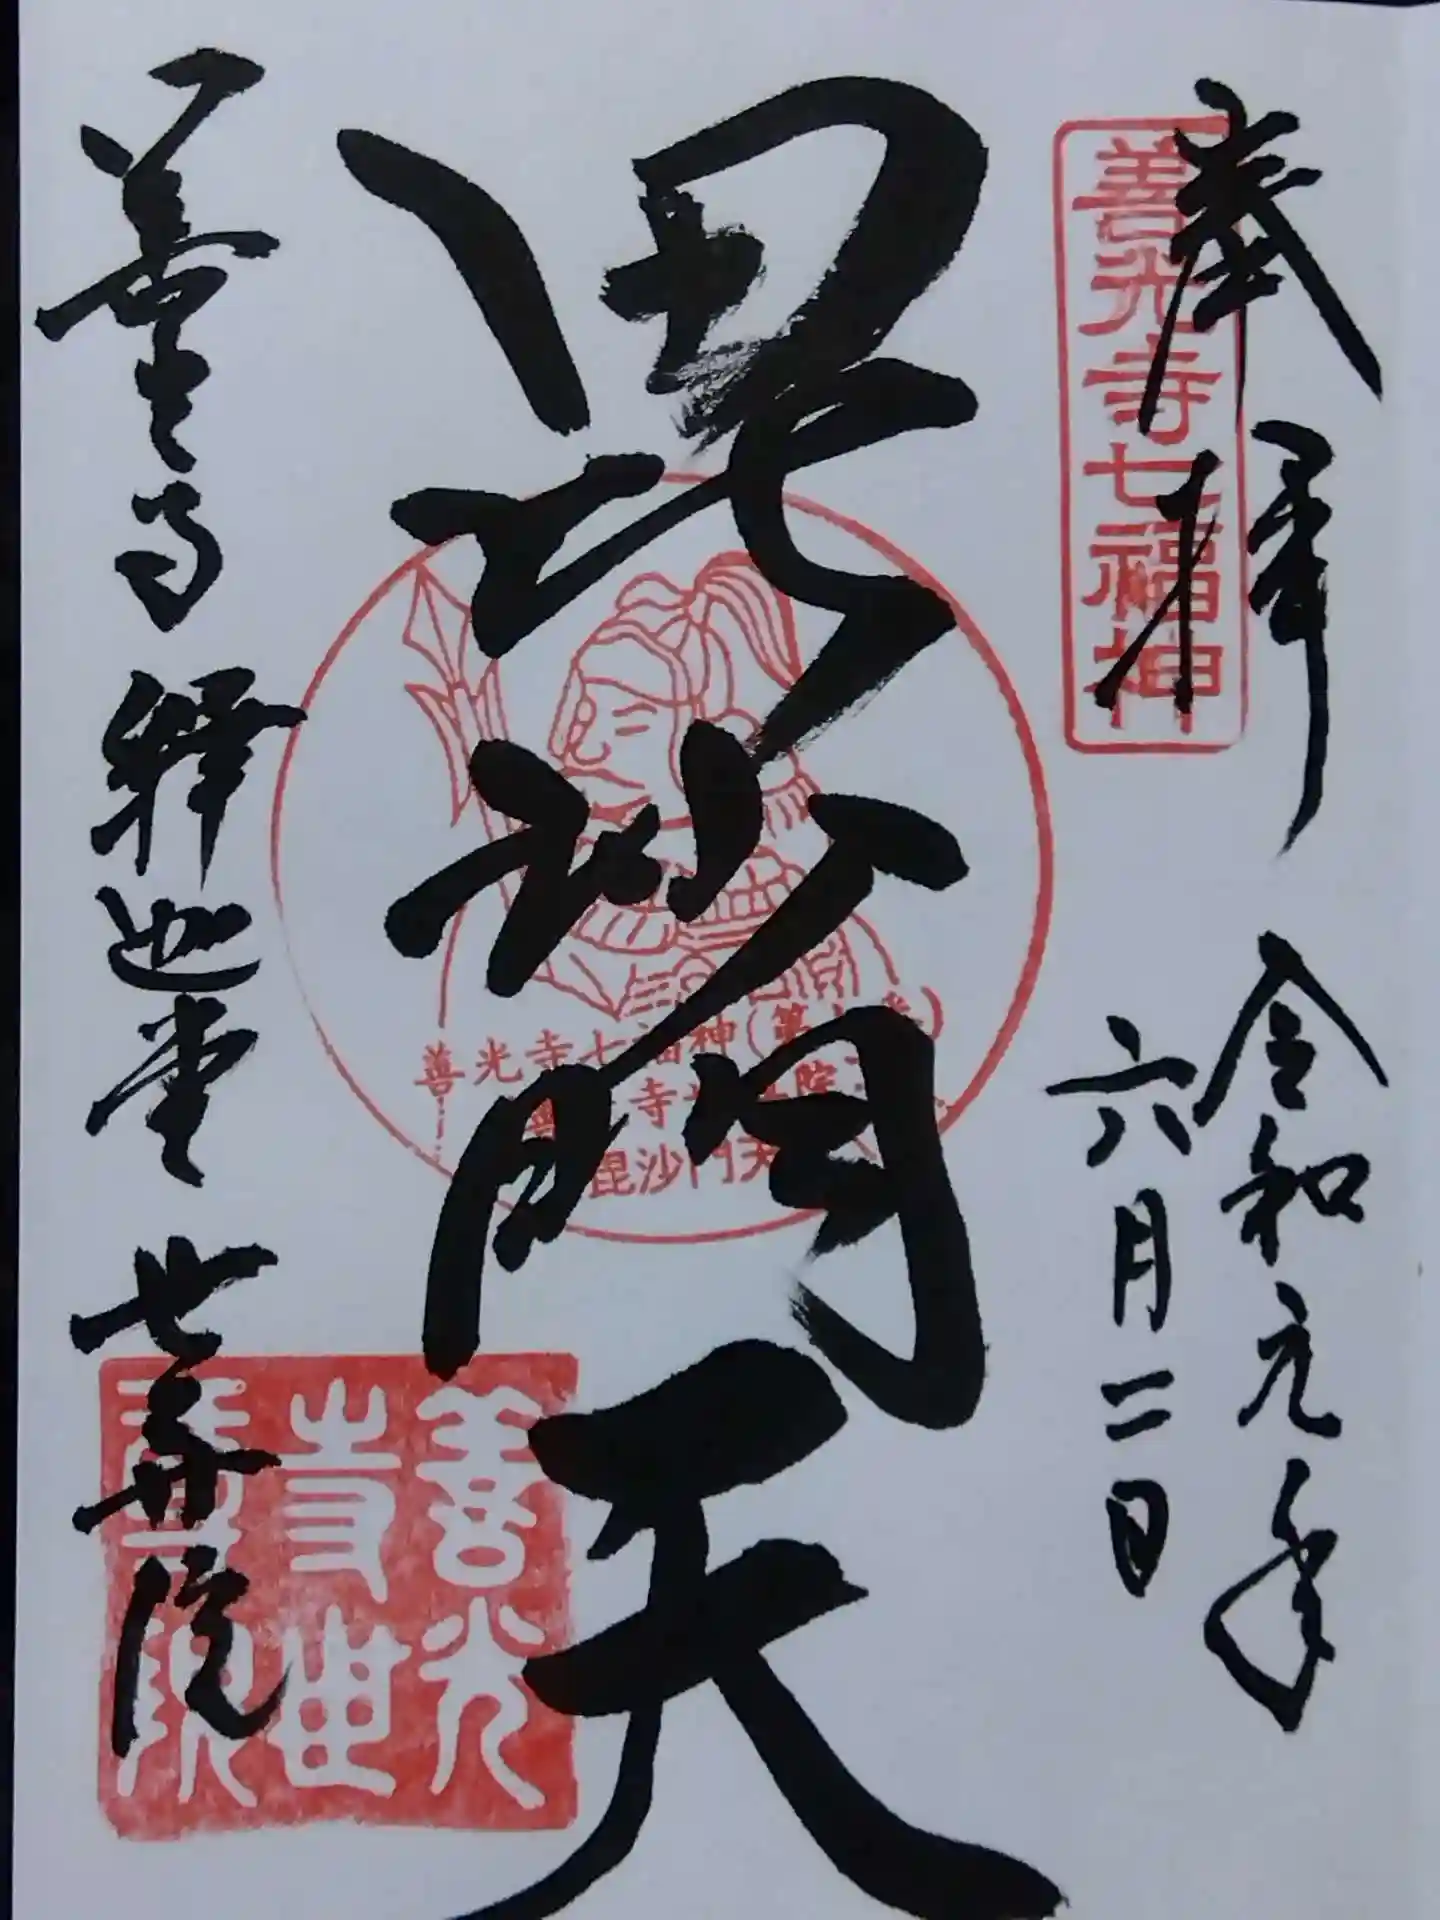 奉拝
善光寺七福神
令和元年
六月二日
毘沙門天
善光寺七福神
毘沙門天
善光寺 釋迦堂 世尊院
善光
寺世
尊院